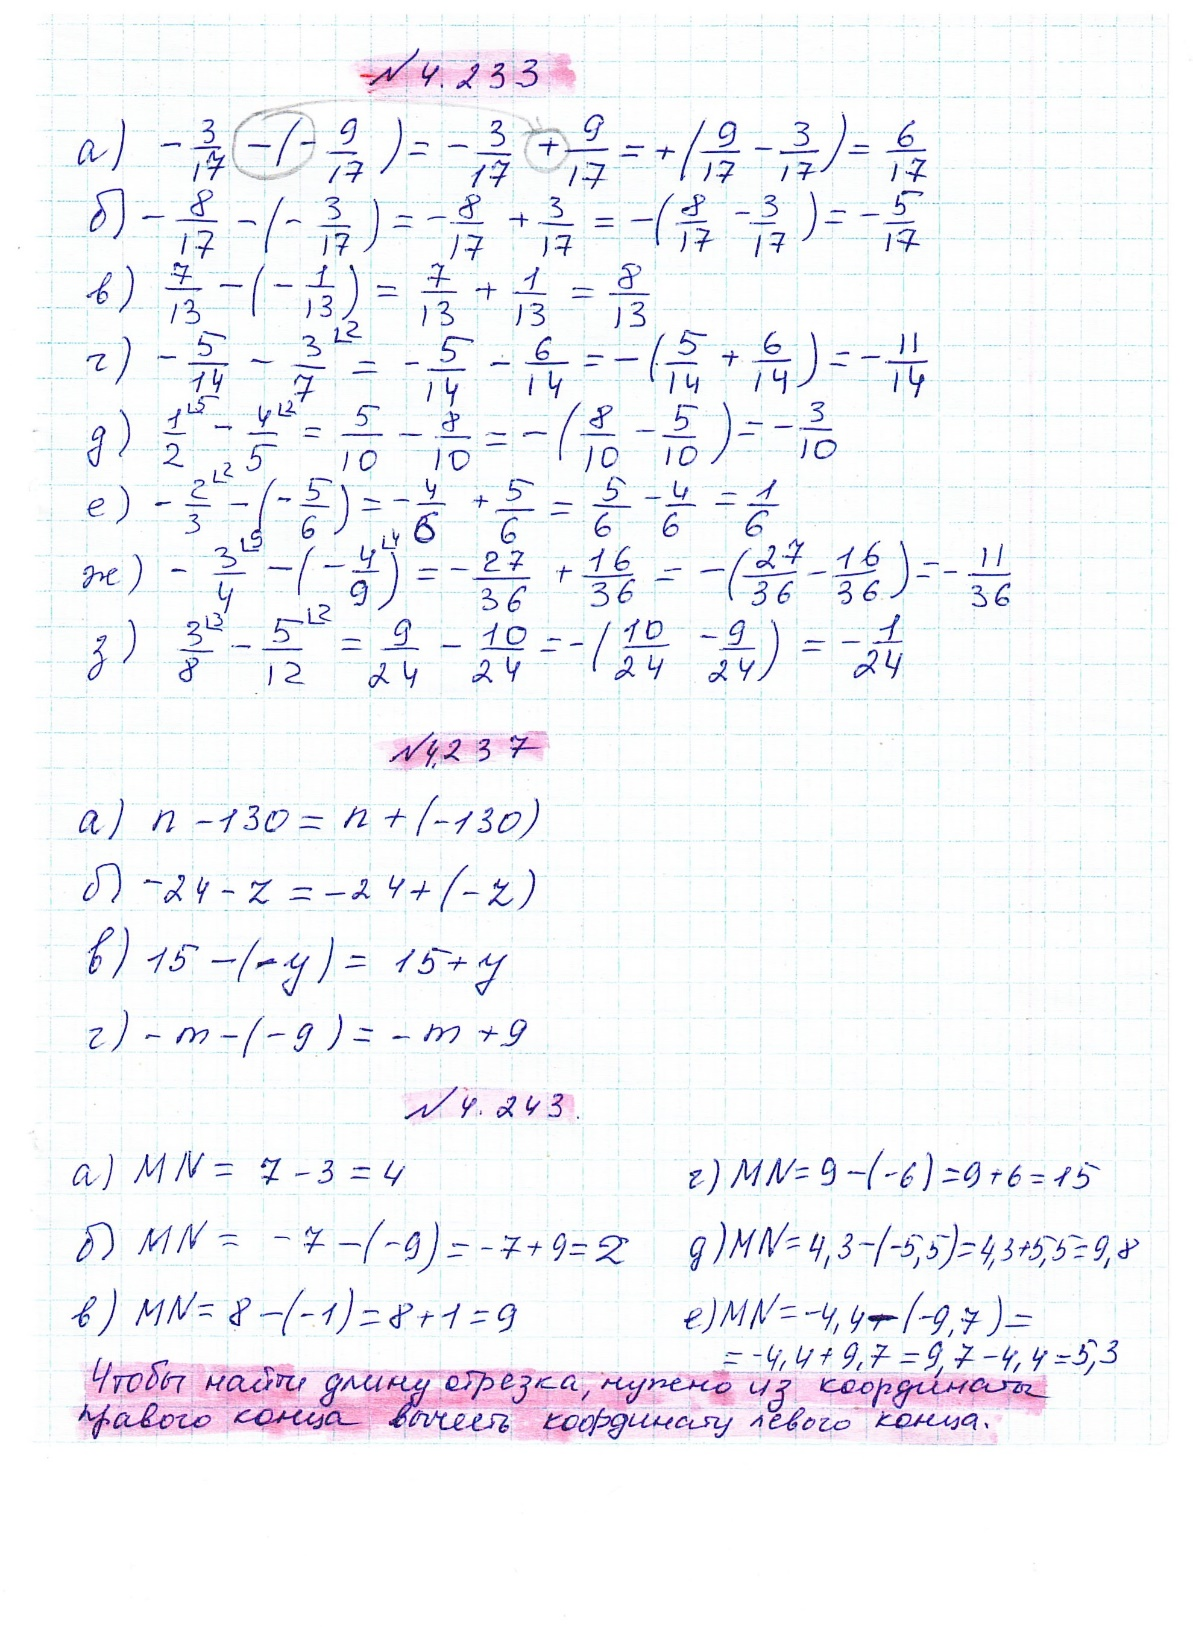 № 4.233
а) -3/17 - (-9/17) = -3/17 + 9/17 = +(9/17 - 3/17) = 6/17
б) -8/17 - (-3/17) = -8/17 + 3/17 = -(8/17 - 3/17) = -5/17
в) 7/13 - (-1/13) = 7/13 + 1/13 = 8/13
г) -5/14 - 3/7 ⌊2 = -5/14 - 6/14 = -(5/14 + 6/14) = -11/14
д) 1/2 ⌊5 - 4/5 ⌊2 = 5/10 - 8/10 = -(8/10 - 5/10) = -3/10
е) -2/3 ⌊2 - (-5/6) = -4/6 + 5/6 = 5/6 - 4/6 = 1/6
ж) -3/4 ⌊9 - (-4/9 ⌊4) = -27/36 + 16/36 = -(27/36 - 16/36) = -11/36
з) 3/8 ⌊3 - 5/12 ⌊2 = 9/24 - 10/24 = -(10/24 - 9/24) = -1/24
№ 4.237
а) n - 130 = n + (-130)
б) -24 - z = -24 + (-z)
в) 15 - (-y) = 15 + y
г) -m - (-9) = -m + 9
№ 4.243.
а) MN = 7 - 3 = 4
б) MN = -7 - (-9) = -7 + 9 = 2
в) MN = 8 - (-1) = 8 + 1 = 9
г) MN = 9 - (-6) = 9 + 6 = 15
д) MN = 4,3 - (-5,5) = 4,3 + 5,5 = 9,8
е) MN = -4,4 - (-9,7) =
= -4,4 + 9,7 = 9,7 - 4,4 = 5,3
Чтобы найти длину отрезка, нужно из координаты
правого конца вычесть координату левого конца.